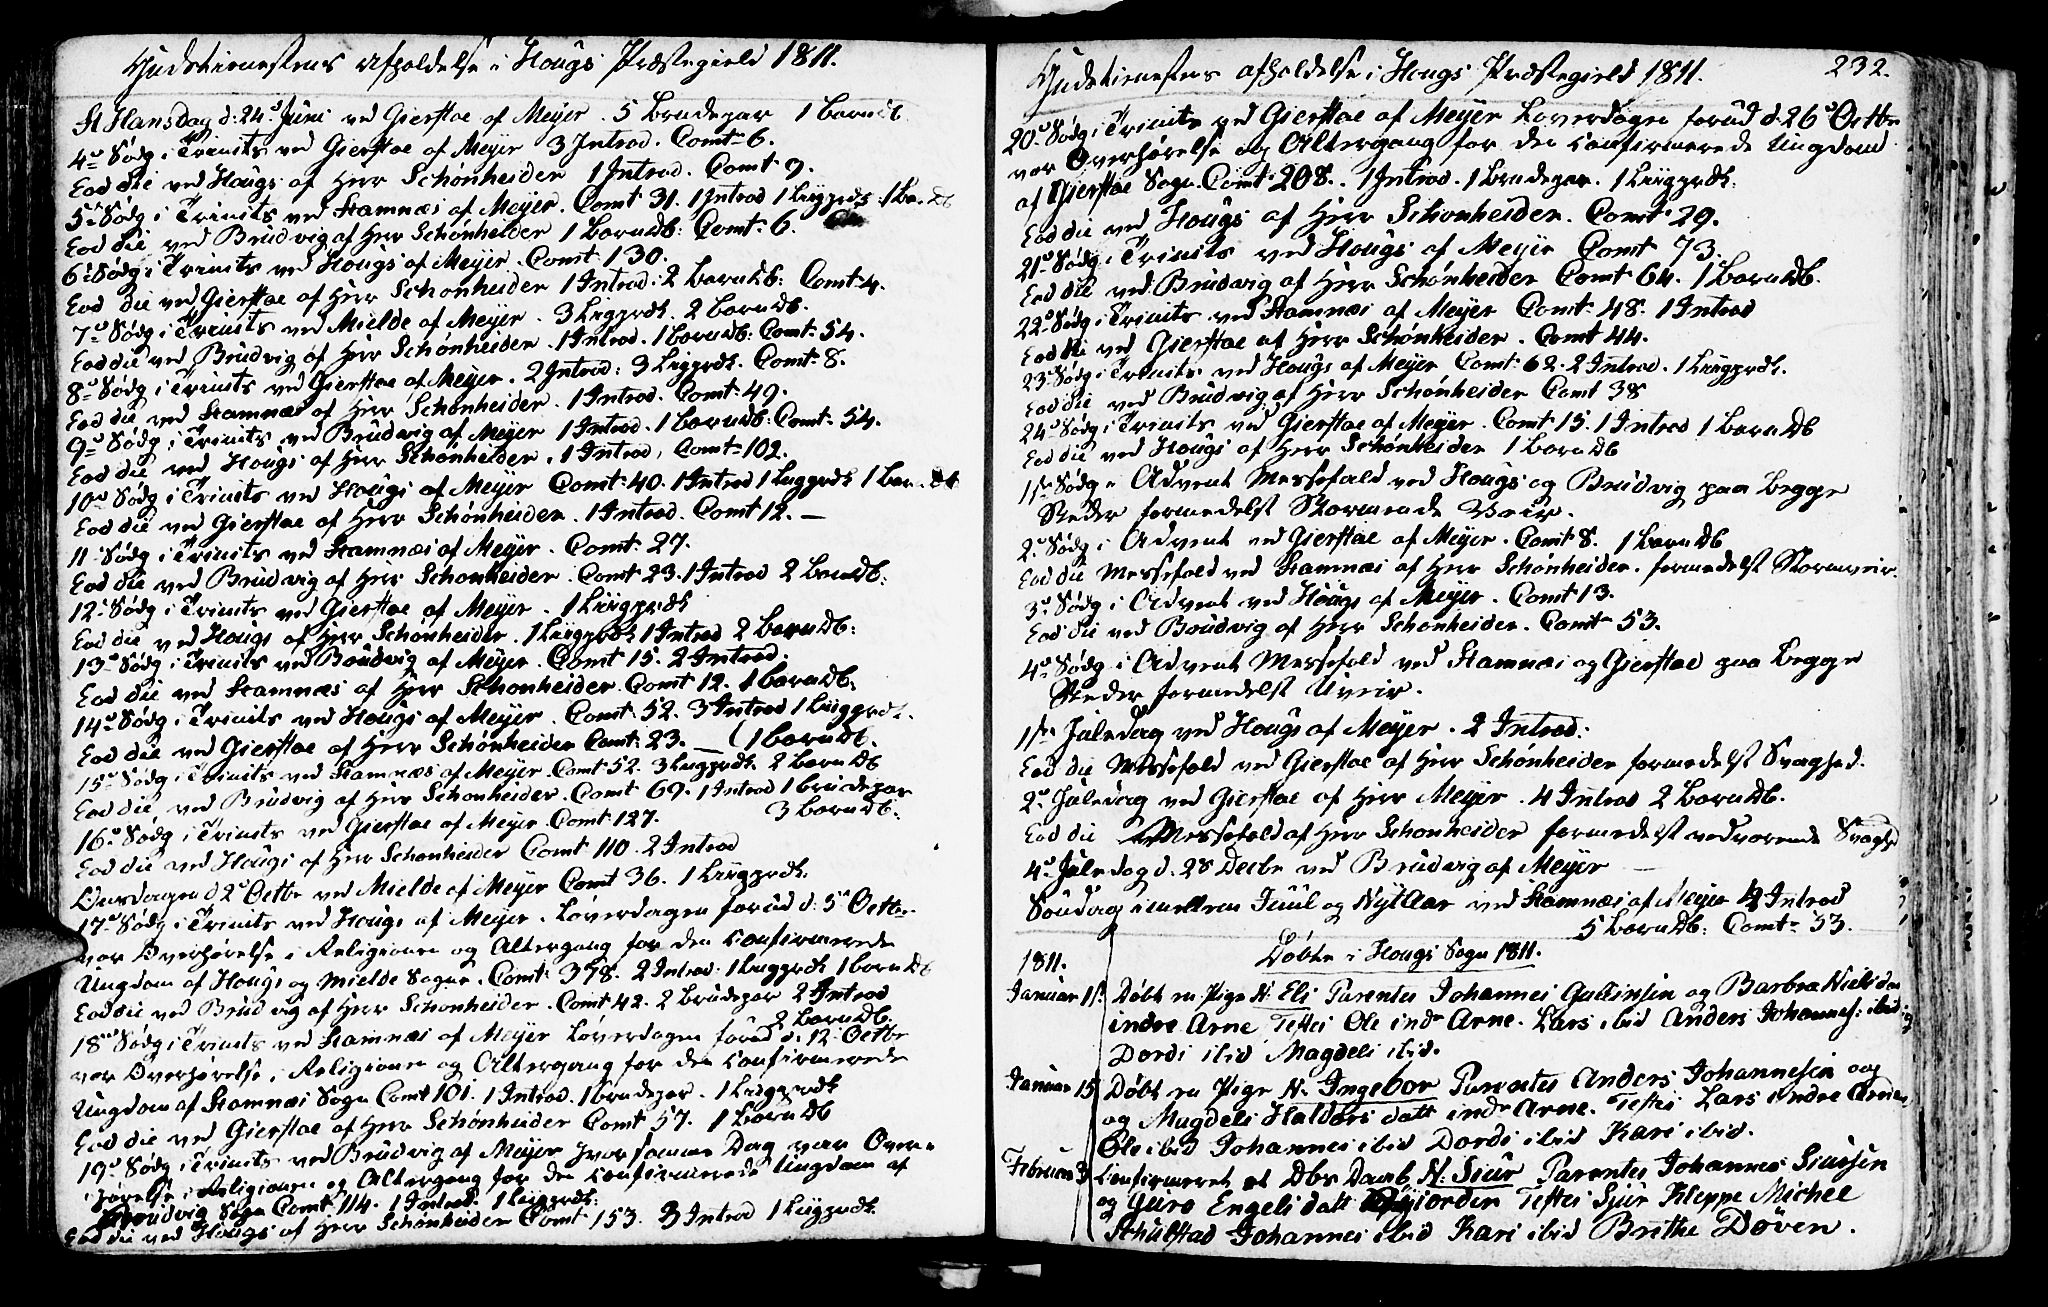 Gudstienestens Afholdelse i Hougs Præstegield 1811.
St Hansdag d: 24d Juni ved Gierstae af Meyer. 5 Brudepar 1 Barn db
4d Sødg i Trinits ved Gierstae af Meyer 3 Introd. Comt 6.
Eod die ved Hougs af Herr Schønheider 1 Introd. Comt 9.
5te Sødg i Trinits ved Stamnæs af Meyer. Comt 31. 1 Introd 1 Liigprdk. 1 Barn Db
Eod die ved Brudvig af Herr Schønheider 1 Barn Db: Comt: 6.
6te Sødg i Trinits ved Hougs af Meyer. Comt 130.
Eod die ved Gierstae af Herr Schønheider 1 Introd: 2 Barn Db: Comt 4.
7d Sødg i Trinits ved Mielde af Meyer. 3 Ligprdk. 2 Barn Db.
Eod die ved Brudvig af Herr Schønheider. 1 Introd. 1 Barn Db: Comt: 54.
8d Sødg i Trinits ved Gierstae af Meyer. 2 Introd: 3 Ligprdk. Comt: 8.
Eod die ved Stamnæs af Herr Schønheider. 1 Introd. Comt: 49.
9d Sødg i Trinits ved Brudvig af Meyer 1 Introd. 1 Barn Db: Comt: 54.
Eod die ved Hougs af Herr Schønheider. 1 Introd, Comt 102.
10d Sødg i Trinits ved Hougs af Meyer Comt: 40. 1 Introd 1 Liigprdk 1 Barn Db
Eod die ved Gierstae af Herr Schønheider. 1 Introd. Comt 12. —
11 Sødg i Trinits ved Stamnæs af Meyer. Comt: 27.
Eod die ved Brudvig af Herr Schønheider. Comt 23. 1 Introd 2 Barn Db:
12te Sødg i Trinits ved Gierstae af Meyer. 1 Liigprdk
Eod die ved Hougs af Herr Schønheider. 1 Liigprdk 1 Introd 2 Barn Db:
13d Sødg i Trinits ved Brudvig af Meyer. Comt 15. 2 Introd.
Eod die ved Stamnæs af Herr Schønheider. Comt 12. 1 Barn Db:
14d Sødg i Trinits ved Hougs af Meyer. Comt: 52. 3 Introd 1 Liigprdk.
Eod die ved Gierstae af Herr Schønheider Comt: 23. — (1 Barn Db.
15d Sødg i Trinits ved Stamnæs af Meyer. Comt 52. 3 Liigprdk. 2 Barn Db
Eod die ved Brudvig af Herr Schønheider. Comt 69. 1 Introd 1 Brudepar
16d Sødg i Trinits ved Gierstae af Meyer. Comt 127. 3 Barn Db:
Eod die ved Hougs af Herr Schønheider Comt 110. 2 Introd
Onsdagen d 2d Octbr ved Mielde af Meyer Comt 36. 1 Liigprdk.
17d Sødg i Trinits ved Hougs af Meyer. Løverdagen forud d: 5d Octbr.
var Overhørelse i Religionen og Altergang for den Confirmerede
Ungdom af Hougs og Mielde Sogne. Comt: 378. 2 Introd: 1 Liigprdk 1 Barn Db
Eod die ved Brudvig af Herr Schønheider. Comt: 42. 2 Brudepar 2 Introd
2 Barn Db.
18d Sødg i Trinits ved Stamnæs af Meyer Løverdagen forud d: 12 Octbr
var Overhørelse i Religionen og Altergang for den Confirmerede
Ungdom af Stamnæs Sogn Comt 101. 1 Introd. 1 Brudepar. 1 Liigprdk
Eod die ved Gierstae af Herr Schønheider Comt 57. 1 Barn Db
19d Sødg i Trinits ved Brudvig af Meyer hvor samme Dag var Over-
hørelse i Religionen og Altergang for den Confirmerede Ungdom af
Brudvig Sogn Comt 114. 1 Introd. 1 Liigprdk.
Eod die ved Hougs af Herr Schønheider Comt 153. 3 Introd 1 Liigprdk.
Gudstienestens afholdelse i Hougs Præstegield 1811. 232.
20d Sødg i Trinits ved Gierstae af Meyer Løverdagen forud d. 26d Octbr
var Overhørelse og Altergang for den Confirmerede Ungdom
af Gierstae Sogn. Comt 208. 1 Introd. 1 Brudepar. 1 Liigprdk.
Eod die ved Hougs af Herr Schønheider. Comt 29.
21d Sødg i Trinits ved Hougs af Meyer Comt 73.
Eod die ved Brudvig af Herr Schønheider Comt 64. 1 Barn Db.
22d Sødg i Trinits ved Stamnæs af Meyer Comt: 48. 1 Introd
Eod die ved Gierstae af Herr Schønheider. Comt 44.
23d Sødg i Trinits ved Hougs af Meyer Comt: 62. 2 Introd. 1 Liigprdk.
Eod die ved Brudvig af Herr Schønheider Comt 38
24d Sødg i Trinits ved Gierstae af Meyer. Comt 15. 1 Introd 1 Barn Db
Eod die ved Hougs af Herr Schønheider 1 Barn Db
1st Sødg i Advent Messefald ved Hougs og Brudvig paa begge
Steder formedelst Stormende Veir.
2d Sødg i Advent ved Gierstae af Meyer. Comt 8. 1 Barn Db
Eod die Messefald ved Stamnæs af Herr Schønheider. formedelst Stormveir.
3d Sødg i Advent ved Hougs af Meyer. Comt 13.
Eod die ved Brudvig af Herr Schønheider. Comt 53.
4d Sødg i Advent Messefald ved Stamnæs og Gierstae paa begge
Steder formedelst Uveir.
1st Juledag ved Hougs af Meyer. 2 Introd:
Eod die Messefald ved Gierstae af Herr Schønheider formedelst Svaghed.
2d Juledag ved Gierstae af Herr Meyer. 4 Introd 2 Barn Db.
Eod die Messefald af Herr Schønheider formedelst vedvarende Svaghd
4d Juledag d. 28 Decbr ved Brudvig af Meyer —
Søndag imellem Juul og Nyt Aar ved Stamnæs af Meyer 2 Introd
5 Barn Db: Comt 53.
1811. Døbte i Hougs Sogn 1811.
Januar 1st Døbt en Pige N: Eli Parentes Johannes Gulliksen og Barbra Nielsdatr
indre Arne Testes Ole indr Arne. Lars ibid Anders Johannes: ibid
Dordi ibid Magdeli ibid.
Januar 15 Døbt en Pige N. Ingebor Parentes Anders Johannesen og
og Magdeli Haldors datt indr Arne. Testes Lars indre Arne
Ole ibid Johannes ibid Dordi ibid Kari ibid.
Februar 3 Confirmeret et Dbs Daab N. Siur Parentes Johannes Siursen
og Guro Engels datt Testes Siur Kleppe Michel
Schulstad Johannes ibid Kari ibid Brithe Døven.